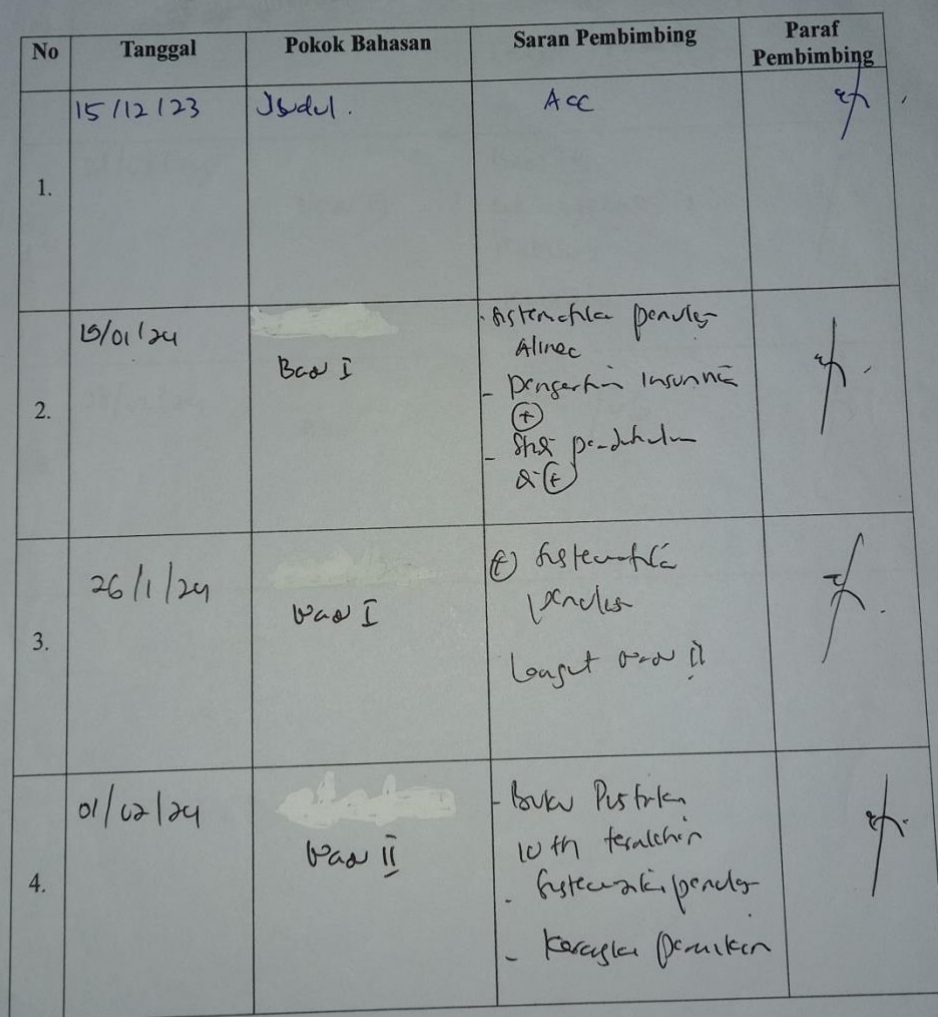 No Tanggal Pokok Bahasan Saran Pembimbing Paraf
Pembimbing
1. 15/12/23 Judul. Acc
2. /01/24 Bab I - Sistematika penulis
Alinea
- Pengertian Insomnia
+
- Studi pendahuluan
di +
3. 26/1/24 Bab I + Sistematika
penulis
Lanjut bab II
4. 01/02/24 Bab II - Buku Pustaka
10 th terakhir
- Sistematika penulis
- Kerangka pemikiran